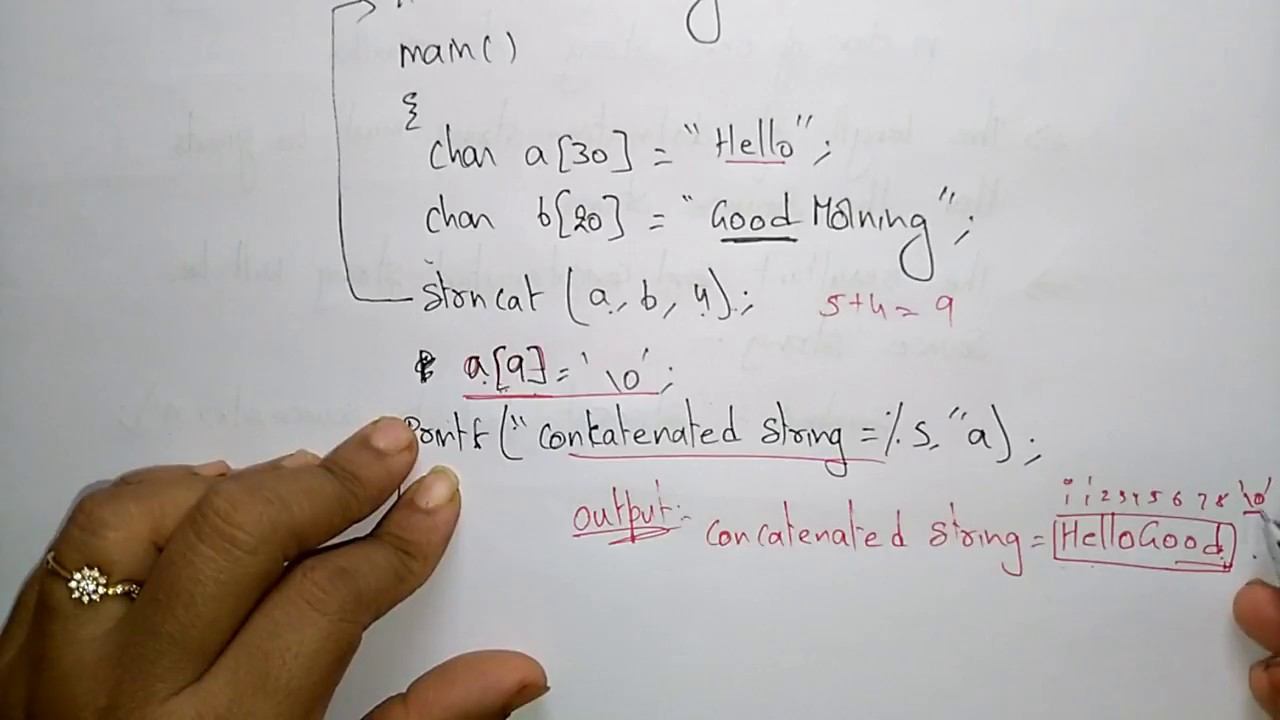 main()
{
char a[30] = "Hello";
char b[20] = "Good Morning";
strncat (a, b, 4); 5+4=9
a[9] = '\0';
Printf ("Concatenated String = %s "a);
i i 2 3 4 5 6 7 8 '\0'
output:- Concatenated String = HelloGood